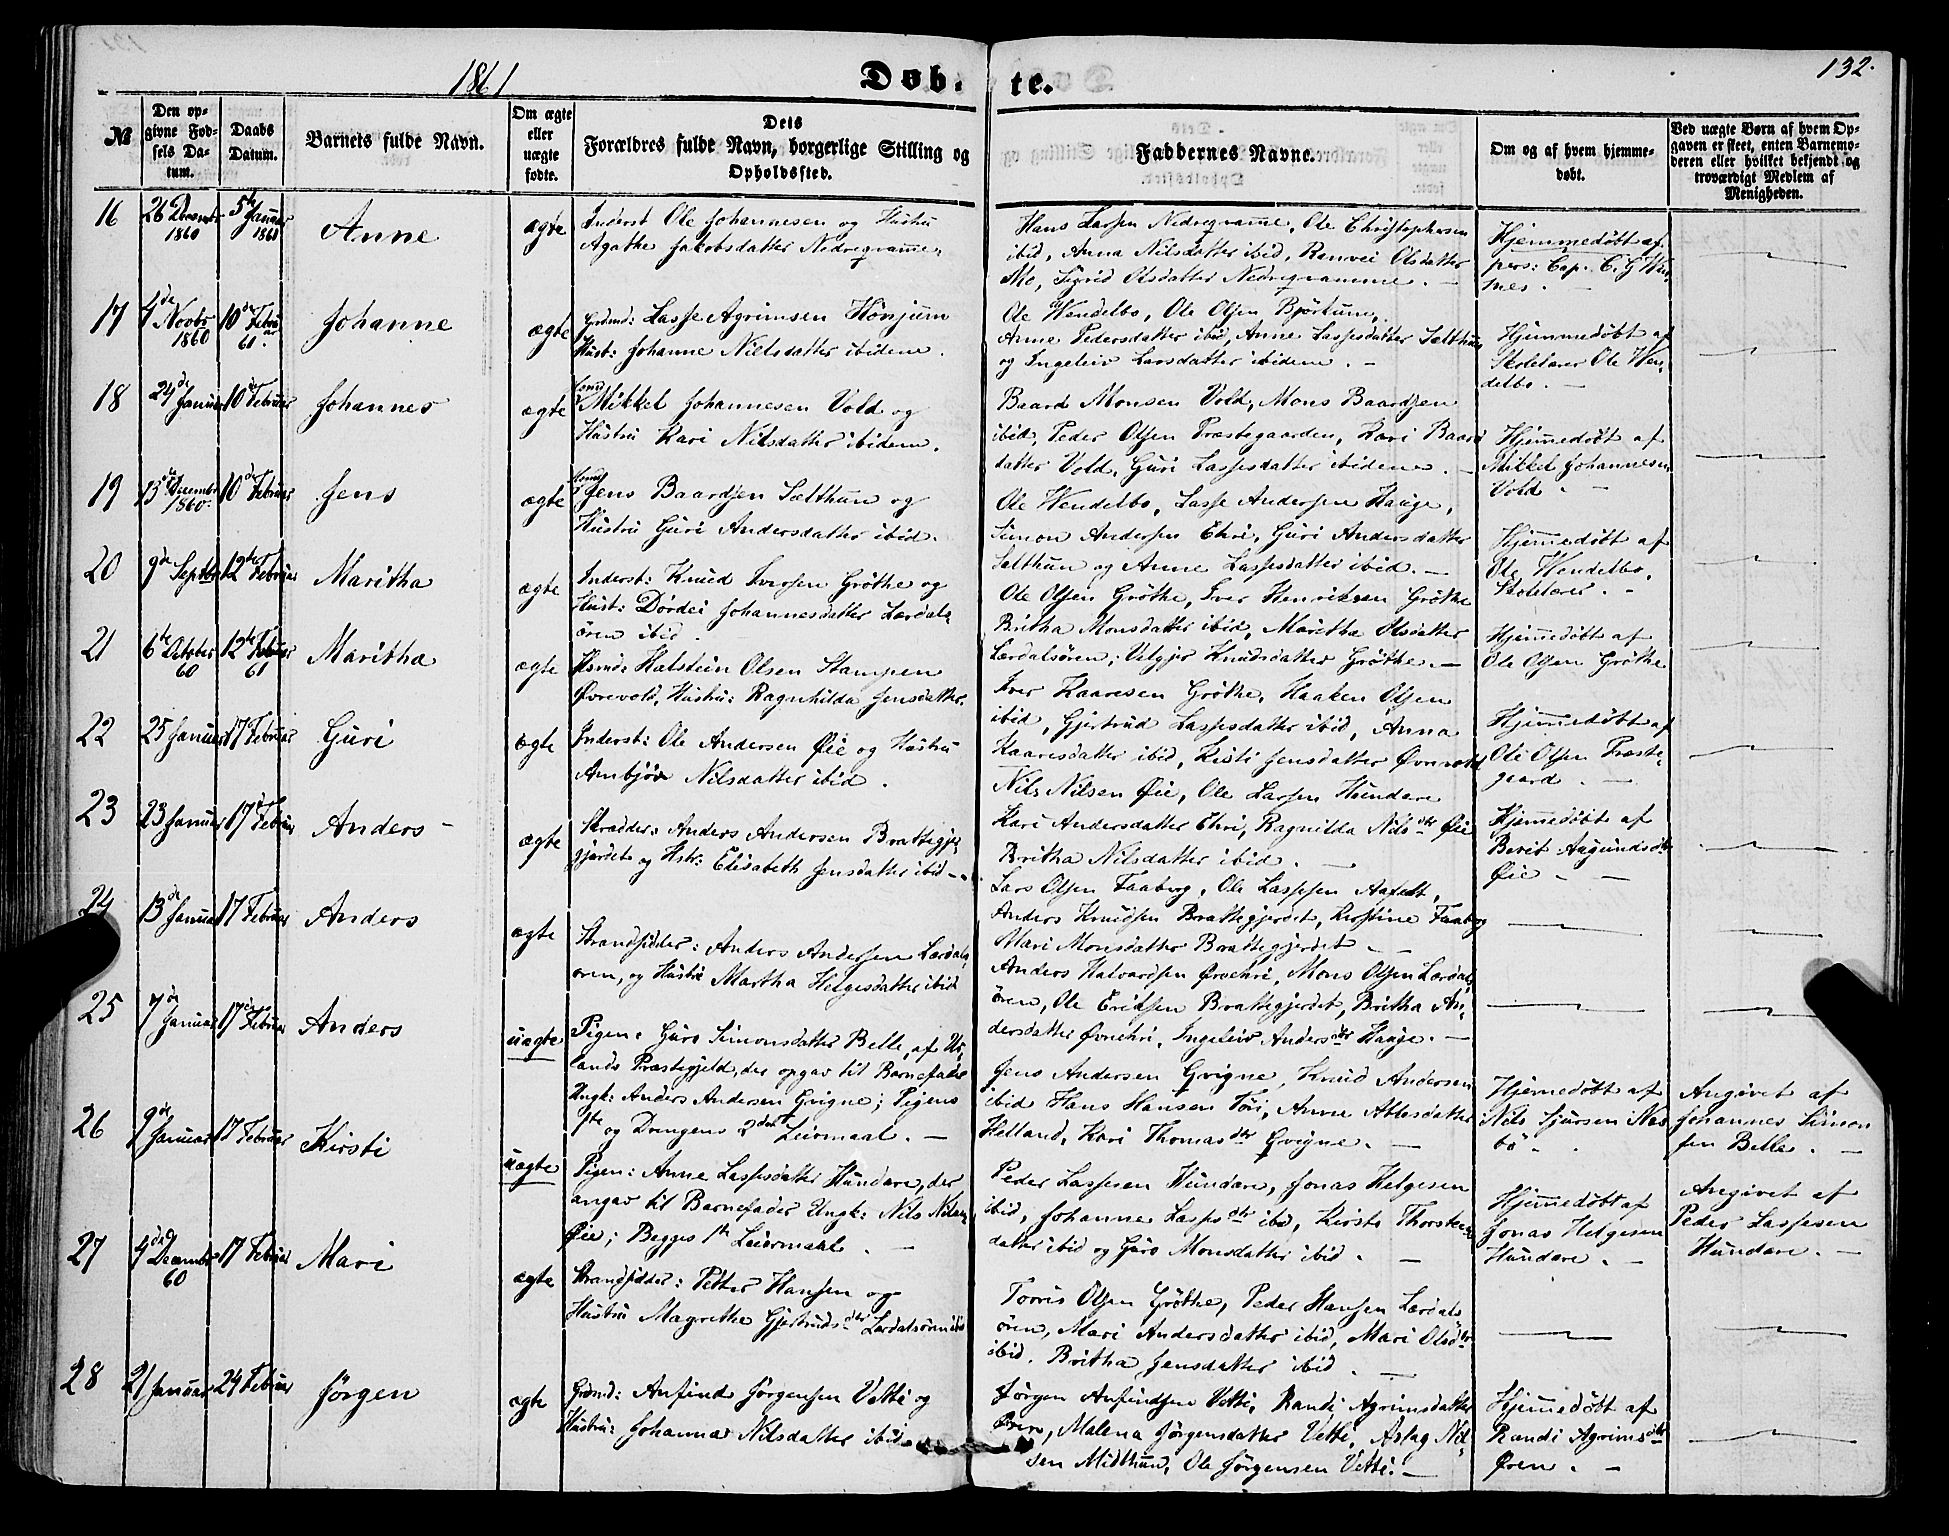 1861
Døb- te.
132.
№
Den op-
givne Fød-
sels Da-
tum.
Daabs
Datum.
Barnets fulde Navn.
Om ægte
eller
uægte
fødte.
Dets
Forældres fulde Navn, borgerlige Stilling og
Opholdssted.
Faddernes Navne.
Om og af hvem hjemme-
døbt.
Ved uægte Børn af hvem Op-
gaven er skeet, enten Barnemo-
deren eller hvilket bekjendt og
troværdigt Medlem af
Menigheden.
16
26 Decembr
1860
5te Januar
1861
Anne
ægte
Inderst Ole Johannesen og Hustru
Agathe Jakobsdatter Nedregramme
Hans Larsen Nedregramme, Ole Christophersen
ibid, Anna Nilsdatter ibid, Ranvei Olsdatter
Mo, Sigrid Olsdatter Nedregramme. —
Hjemmedøbt af
pers: Cap.
17
4de Novbr
1860
10de Febru
ar 61.
Johanne
ægte
Grdmd: Lasse Agrimsen Hønjum
Hust: Johanne Nielsdatter ibidem.
Ole Wendelbo, Ole Olsen Bjørkum,
Anne Pedersdatter ibid, Anne Lassesdatter Sælthun
og Ingeleiv Larsdatter ibidem. —
Hjemmedøbt af
Skolelærer Ole Wen
delbo. —
18
24de Januar
10de Februar
Johannes
ægte
Mikkel Johannesen Vold og
Hustru Kari Nilsdatter ibidem.
Baard Monsen Vold, Mons Baardsen
ibid, Peder Olsen Præstegaarden, Kari Baard
datter Vold, Guri Lassesdatter ibidem. —
Hjemmedøbt af
Mikkel Johannesen
Vold. —
19
13de Decembr
1860.
10de Februar
Jens
ægte
Jens Baardsen Sælthun og
Hustru Guri Andersdatter ibid.
Ole Wendelbo, Lasse Andersen Hauge,
Simon Andersen Ehri, Guri Andersdatter
Sælthun og Anne Lassesdatter ibid. —
Hjemmedøbt af
Ole Wendelbo,
Skolelærer. —
20
9de Septbr
12te Februar
Maritha
ægte
Inderst: Knud Iversen Grøthe og
Hust: Dordei Johannesdatter Lærdals
ören ibid.
Ole Olsen Grøthe, Iver Henriksen Grøthe
Britha Monsdatter ibid, Maritha Olsdatter
Lærdalsören, Velgjer Knudsdatter Grøthe. —
Hjemmedøbt af
Ole Olsen Grøthe.
21
6te October
60
12te Februar
61
Maritha
ægte
Halstein Olsen Stampen
Øvrevold, Hustru: Ragnhilda Jensdatter.
Iver Kaaresen Grøthe, Haaken Olsen
ibid, Gjertrud Lassesdatter ibid, Anna
Kaaresdatter ibid, Kisti Jensdatter Øvrevold
Hjemmedøbt af
Ole Olsen Præste
gaard. —
22
25 Januar
17 Februar
Guri
ægte
Inderst: Ole Andersen Øie og Hustru
Ambjør Nilsdatter ibid.
Nils Nilsen Øie, Ole Larsen Hundere
Kari Andersdatter Ehri, Ragnilda Nilsdtr Øie
Britha Nilsdatter ibid. —
Hjemmedøbt af
Berit Aagundsdtr
Øie — —
23
23 Januar
17de Februar
Anders —
ægte
Skrædder: Anders Andersen Brattegje
gjerdet og Hstr: Elisabeth Jensdatter ibid —
Lars Olsen Faaberg, Ole Lassesen Aafedt,
Anders Knudsen Brattegjerdet, Kirstine Faaberg
Mari Monsdatter Brattegjerdet —
24
13de Januar
17 Februar
Anders
ægte
Strandsidder: Anders Andersen Lærdals
ören, og Hustru Martha Helgesdatter ibid
Anders Halvardsen Øvrehri, Mons Olsen Lærdals
ören, Ole Eriksen Brattegjerdet, Britha An
dersdatter Øvrehri, Ingeleiv Andersdtr Hauge. —
25
7de Januar
17de Februar
Anders
uægte
Pigen: Guro Simonsdatter Belle, af Ur
lands Præstegjeld, der opgav til Barnefader
Ungk: Anders Andersen Qvigne; Pigens
og Drengens 2det Leiermaal. —
Jens Andersen Qvigne, Knud Andersen
ibid Hans Hansen Töri, Anne Atlesdatter
Helland, Kari Thomasdtr Qvigne. —
Hjemmedøbt af
Nils Sjursen Næs
bö —
Angivet af
Johannes Simon
sen Belle. —
26
9de Januar
17 Februar
Kirsti
uægte
Pigen: Anne Lassesdatter Hundere, der
angav til Barnefader Ungk: Nils Nilsen
Øie; Begges 1ste Leiermaal. —
Peder Lassesen Hundere, Jonas Helgesen
ibid, Johanne Lassesdtr ibid, Kirsti Thorsten
datter ibid og Guro Monsdatter ibid. —
Hjemmedøbt af
Jonas Helgesen
Hundere. —
Angivet af
Peder Lassesen
Hundere. —
27
4de Decembr
60
17 Februar
Mari
ægte
Strandsidder: Petter Hansen og
Hustru Magrethe Gjertrudsdtr Lærdalsören ibid
Torris Olsen Grøthe, Peder Hansen Lærdals
ören, Mari Andersdatter ibid, Mari Olsdtr
ibid. Britha Jensdatter ibid. —
28
21 Januar
24 Februar
Jørgen
ægte
Grdmd: Anfind Jørgensen Vetti og
Hustru: Johanna Nilsdatter ibid.
Jørgen Anfindsen Vetti, Randi Agrimsdatter
Øren, Malena Jørgensdatter Vetti, Aslag Nil
sen Midthun, Ole Jørgensen Vetti. —
Hjemmedøbt af
Randi Agrimsdtr
Øren. —